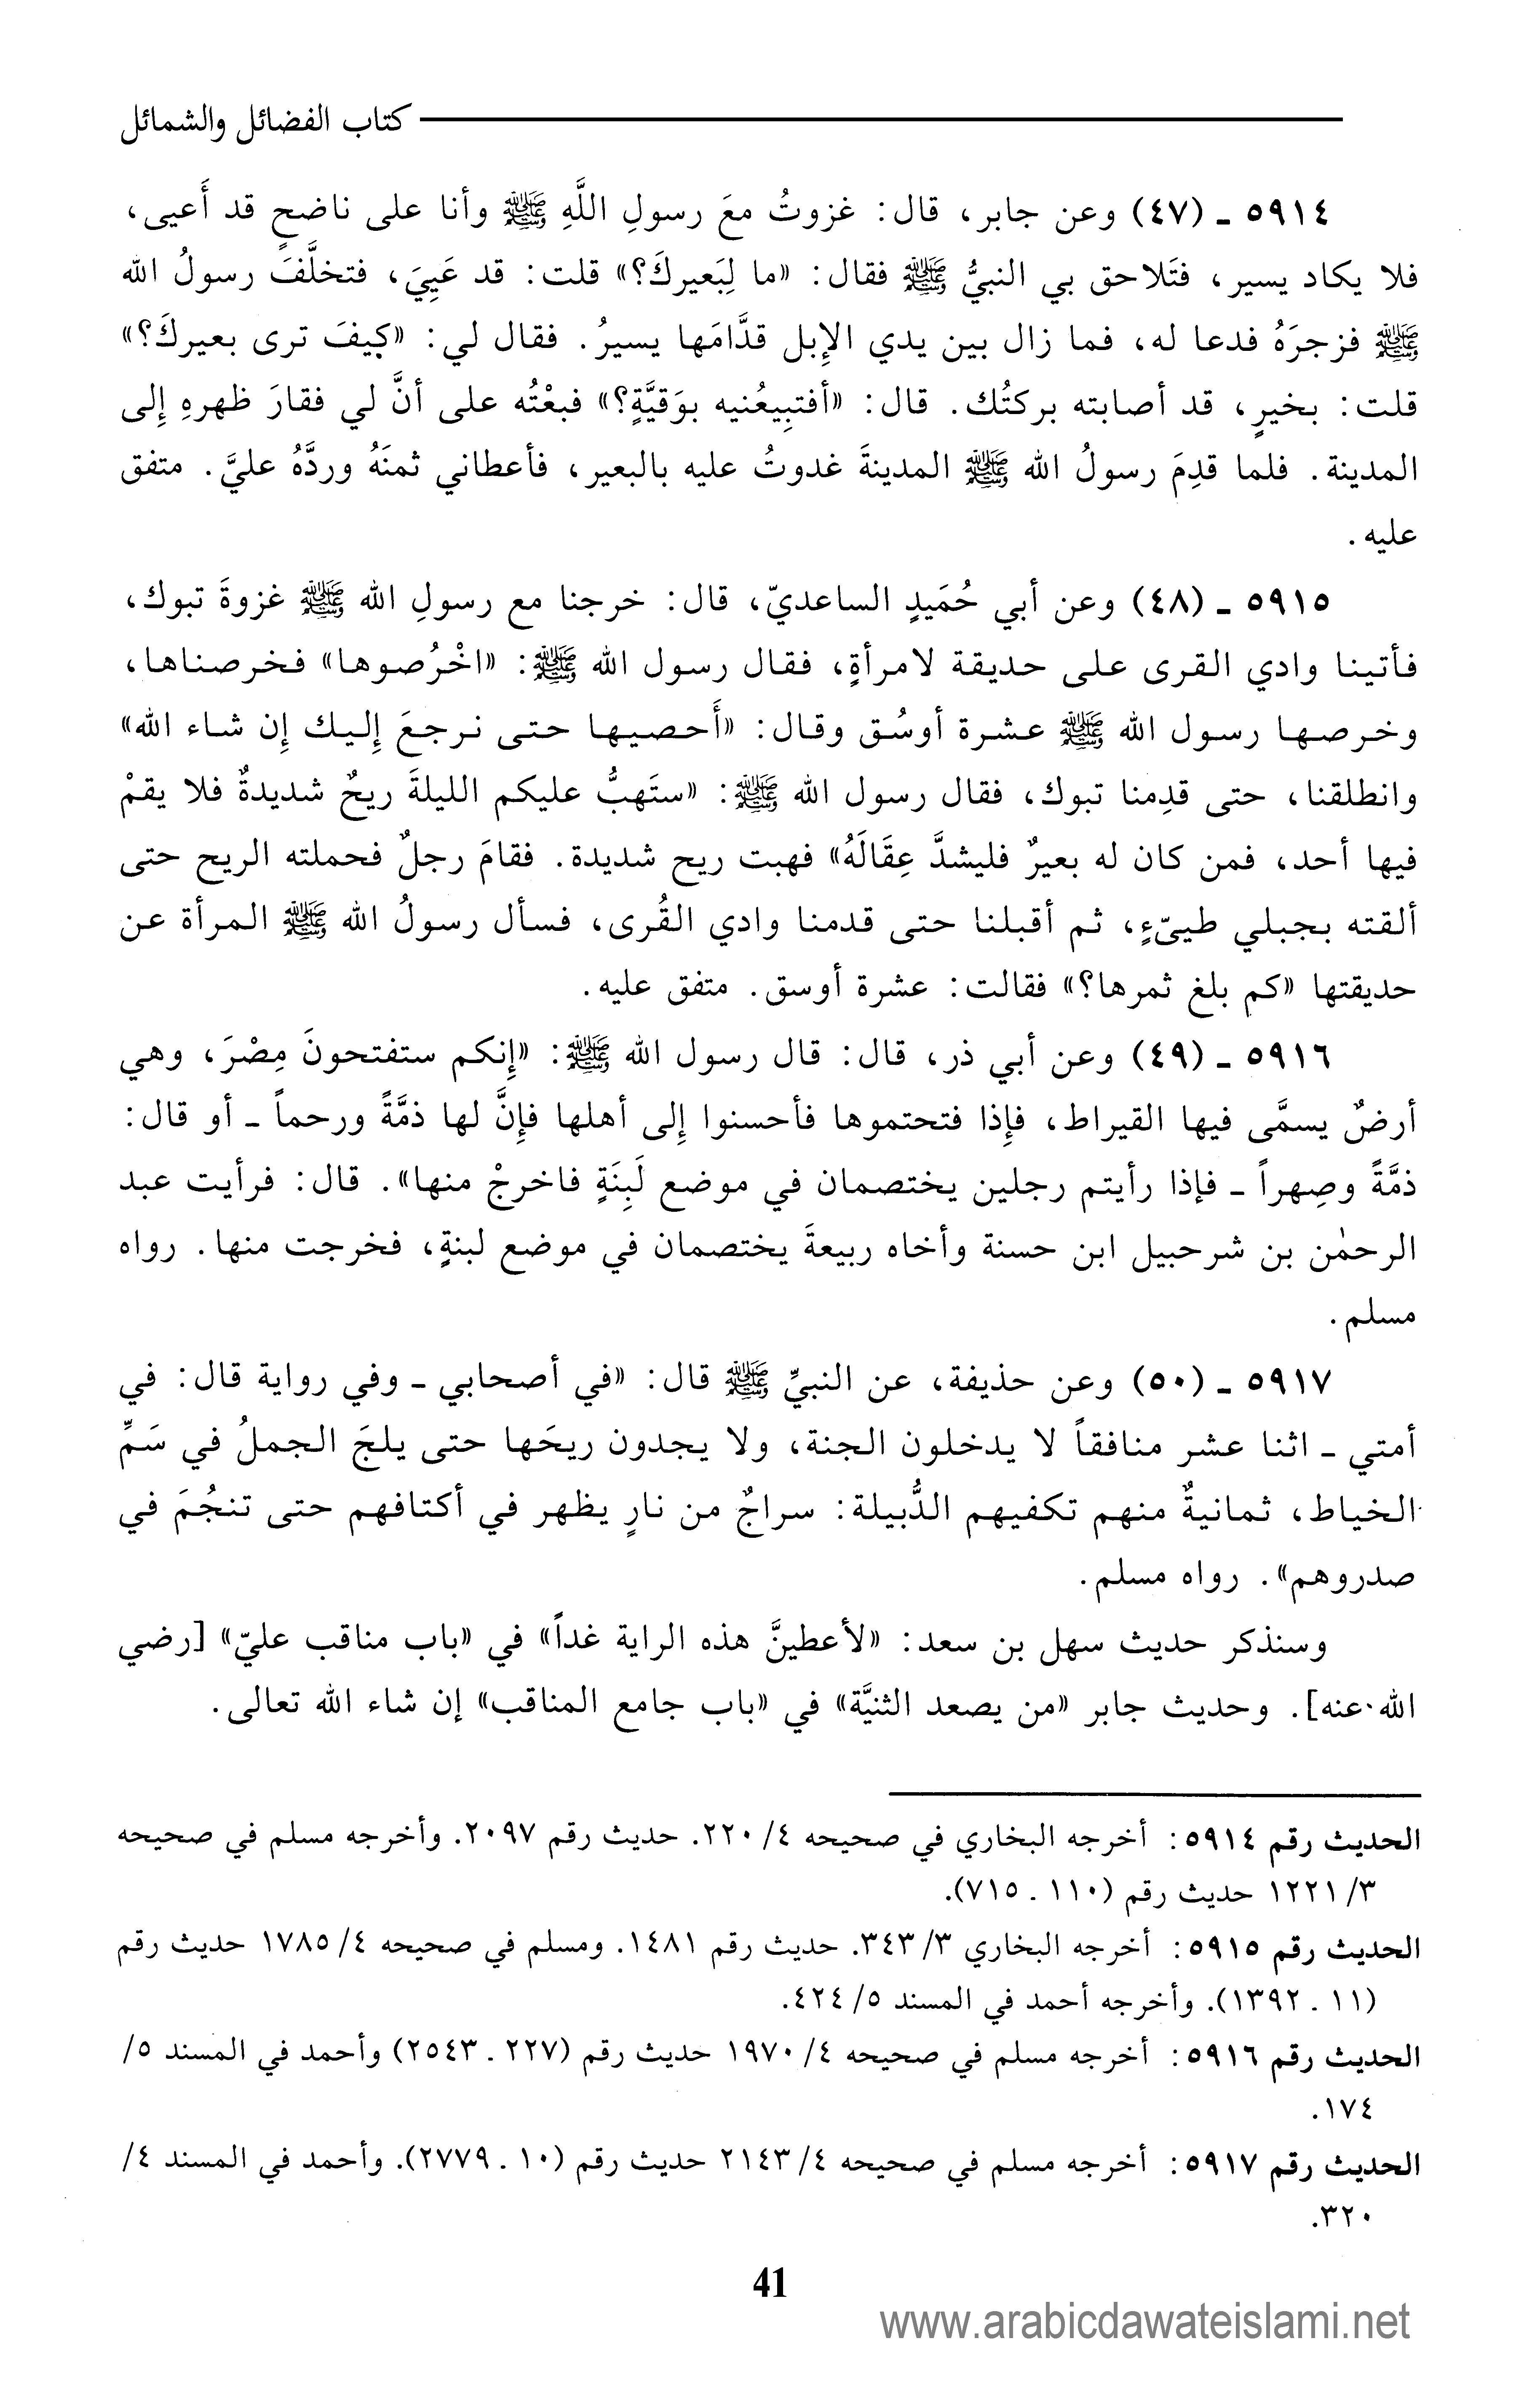 كتاب الفضائل والشمائل
٥٩١٤ ـ (٤٧) وعن جابر، قال: غزوتُ معَ رسولِ اللَّهِ ﷺ وأنا على ناضحٍ قد أَعيى،
فلا يكاد يسير، فتَلاحق بي النبيُّ ﷺ فقال: «ما لِبَعيركَ؟» قلت: قد عَيِيَ، فتخلَّفَ رسولُ الله
ﷺ فزجرَهُ فدعا له، فما زال بين يدي الإِبل قدَّامَها يسيرُ. فقال لي: «كيفَ ترى بعيركَ؟»
قلت: بخيرٍ، قد أصابته بركتُك. قال: «أفتبِيعُنيه بوَقيَّةٍ؟» فبعْتُه على أنَّ لي فقارَ ظهرهِ إِلى
المدينة. فلما قدِمَ رسولُ الله ﷺ المدينةَ غدوتُ عليه بالبعير، فأعطاني ثمنَهُ وردَّهُ عليَّ. متفق
عليه.
٥٩١٥ ـ (٤٨) وعن أبي حُمَيدٍ الساعديّ، قال: خرجنا مع رسولِ الله ﷺ غزوةَ تبوك،
فأتينا وادي القرى على حديقة لامرأةٍ، فقال رسول الله ﷺ: «اخْرُصوها» فخرصناها،
وخرصها رسول الله ﷺ عشرة أوسُق وقال: «أَحصيها حتى نرجعَ إِليك إِن شاء الله»
وانطلقنا، حتى قدِمنا تبوك، فقال رسول الله ﷺ: «ستَهبُّ عليكم الليلةَ ريحٌ شديدةٌ فلا يقمْ
فيها أحد، فمن كان له بعيرٌ فليشدَّ عِقَالَهُ» فهبت ريح شديدة. فقامَ رجلٌ فحملته الريح حتى
ألقته بجبلي طيىّءٍ، ثم أقبلنا حتى قدمنا وادي القُرى، فسأل رسولُ الله ﷺ المرأة عن
حديقتها «كم بلغ ثمرها؟» فقالت: عشرة أوسق. متفق عليه.
٥٩١٦ ـ (٤٩) وعن أبي ذر، قال: قال رسول الله ﷺ: «إِنكم ستفتحونَ مِصْرَ، وهي
أرضٌ يسمَّى فيها القيراط، فإِذا فتحتموها فأحسنوا إِلى أهلها فإِنَّ لها ذمَّةً ورحماً ـ أو قال:
ذمَّةً وصِهراً ـ فإذا رأيتم رجلين يختصمان في موضع لَبِنَةٍ فاخرجْ منها». قال: فرأيت عبد
الرحمٰن بن شرحبيل ابن حسنة وأخاه ربيعةَ يختصمان في موضع لبنةٍ، فخرجت منها. رواه
مسلم.
٥٩١٧ ـ (٥٠) وعن حذيفة، عن النبيِّ ﷺ قال: «في أصحابي ـ وفي رواية قال: في
أمتي ـ اثنا عشر منافقاً لا يدخلون الجنة، ولا يجدون ريحَها حتى يلجَ الجملُ في سَمِّ
الخياط، ثمانيةٌ منهم تكفيهم الدُّبيلة: سراجٌ من نارٍ يظهر في أكتافهم حتى تنجُمَ في
صدروهم». رواه مسلم.
وسنذكر حديث سهل بن سعد: «لأعطينَّ هذه الراية غداً» في «باب مناقب عليّ» [رضي
الله عنه]. وحديث جابر «من يصعد الثنيَّة» في «باب جامع المناقب» إن شاء الله تعالى.
الحديث رقم ٥٩١٤: أخرجه البخاري في صحيحه ٤/ ٢٢٠. حديث رقم ٢٠٩٧. وأخرجه مسلم في صحيحه
٣/ ١٢٢١ حديث رقم (١١٠ ـ ٧١٥).
الحديث رقم ٥٩١٥: أخرجه البخاري ٣/ ٣٤٣. حديث رقم ١٤٨١. ومسلم في صحيحه ٤/ ١٧٨٥ حديث رقم
(١١ ـ ١٣٩٢). وأخرجه أحمد في المسند ٥/ ٤٢٤.
الحديث رقم ٥٩١٦: أخرجه مسلم في صحيحه ٤/ ١٩٧٠ حديث رقم (٢٢٧ ـ ٢٥٤٣) وأحمد في المسند ٥/
١٧٤.
الحديث رقم ٥٩١٧: أخرجه مسلم في صحيحه ٤/ ٢١٤٣ حديث رقم (١٠ ـ ٢٧٧٩). وأحمد في المسند ٤/
٣٢٠.
41
www.arabicdawateislami.net